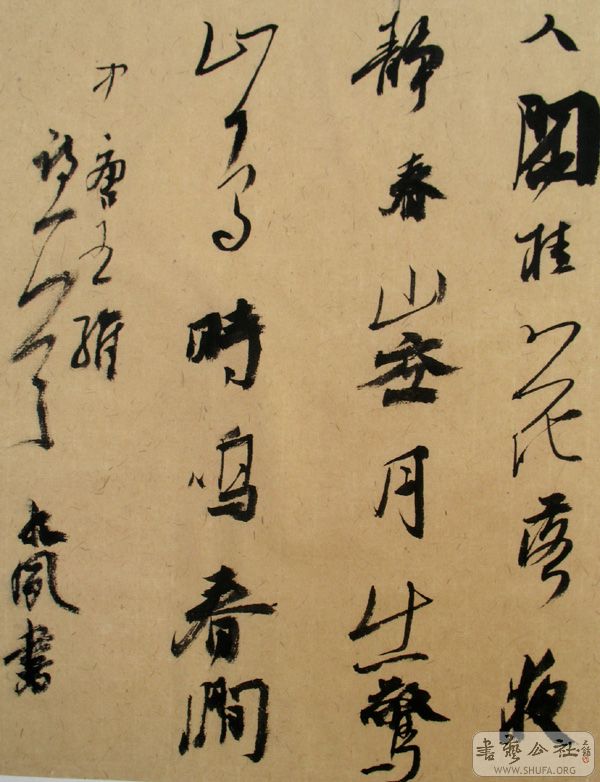 人閒桂花落夜
靜春山空月出驚
山鳥時鳴春澗
中 唐王維
詩一首 書
書藝公社
WWW.SHUFA.ORG